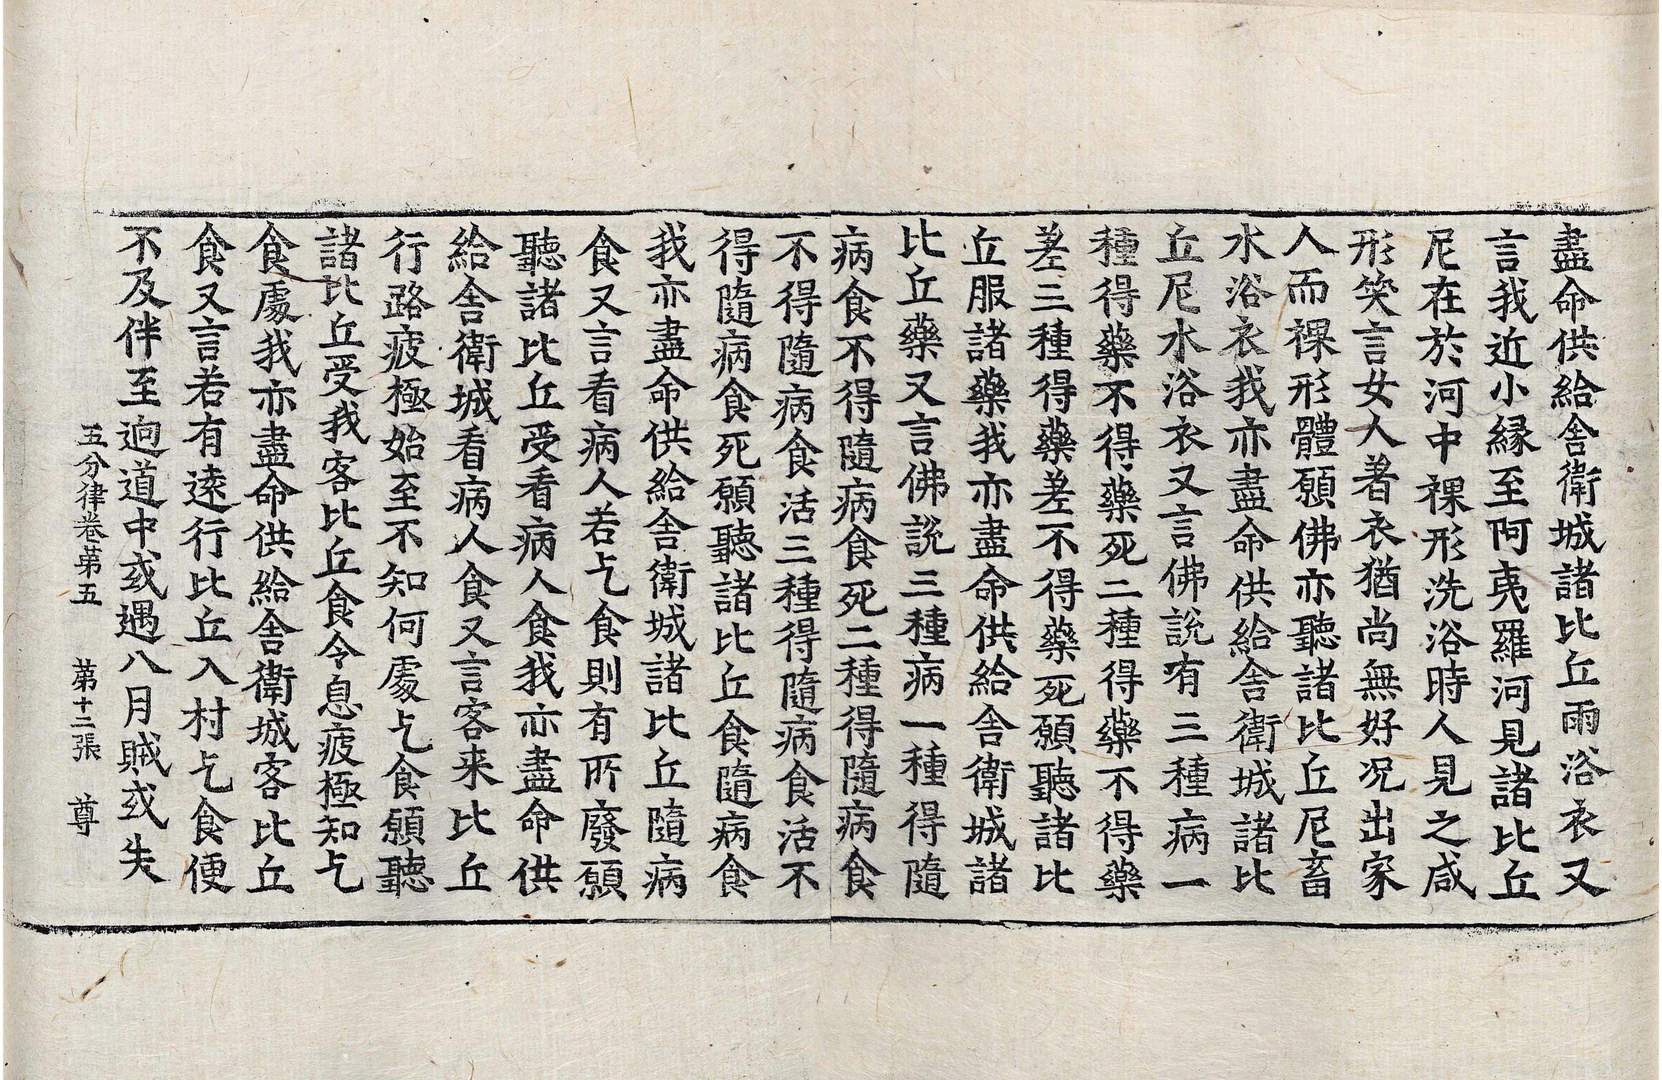 盡命供給舎衛城諸比丘雨浴衣又
言我近小縁至阿夷羅河見諸比丘
尼在於河中裸形洗浴時人見之咸
形笑言女人著衣猶尚無好况出家
人而裸形體願佛亦聽諸比丘尼畜
水浴衣我亦盡命供給舎衛城諸比
丘尼水浴衣又言佛說有三種病一
種得藥不得藥死二種得藥不得藥
差三種得藥差不得藥死願聽諸比
丘服諸藥我亦盡命供給舎衛城諸
比丘藥又言佛說三種病一種得隨
病食不得隨病食死二種得隨病食
不得隨病食活三種得隨病食活不
得隨病食死願聽諸比丘食隨病食
我亦盡命供給舎衛城諸比丘隨病
食又言看病人若乞食則有所廢願
聽諸比丘受看病人食我亦盡命供
給舎衛城看病人食又言客来比丘
行路疲極始至不知何處乞食願聽
諸比丘受我客比丘食令息疲極知乞
食處我亦盡命供給舎衛城客比丘
食又言若有逺行比丘入村乞食便
不及伴至迥道中或遇八月賊或失
五分律卷苐五　苐十二張　尊